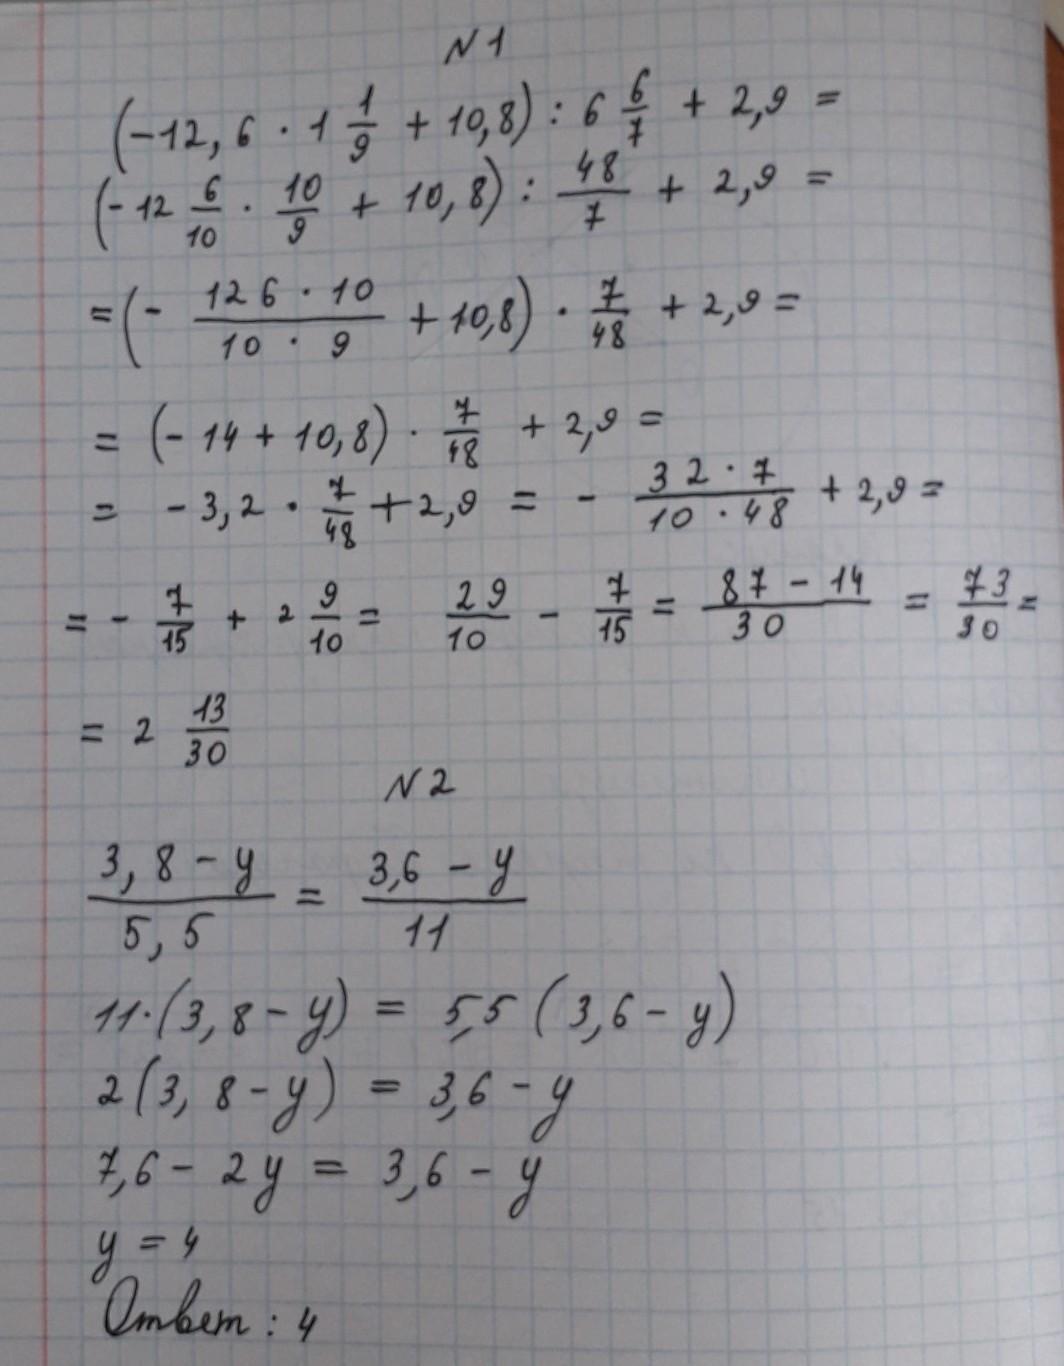 N 1
(-12,6 · 1 1/9 + 10,8) : 6 6/7 + 2,9 =
(-12 6/10 · 10/9 + 10,8) : 48/7 + 2,9 =
= (- 126 · 10/10 · 9 + 10,8) · 7/48 + 2,9 =
= (- 14 + 10,8) · 7/48 + 2,9 =
= - 3,2 · 7/48 + 2,9 = - 32 · 7/10 · 48 + 2,9 =
= - 7/15 + 2 9/10 = 29/10 - 7/15 = 87 - 14/30 = 73/30 =
= 2 13/30
N 2
3,8 - y/5,5 = 3,6 - y/11
11·(3,8 - y) = 5,5 (3,6 - y)
2(3,8 - y) = 3,6 - y
7,6 - 2y = 3,6 - y
y = 4
Ответ : 4